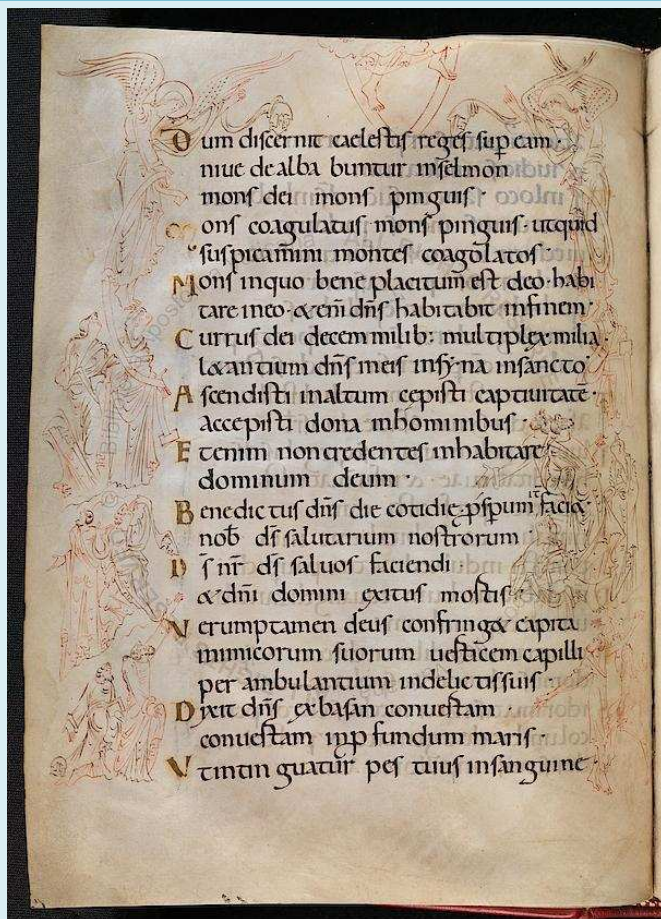 Dum discernit caelestis reges sup̄ eam·
niue dealba buntur inselmon
mons dei mons pinguis·
Mons coagulatus· mons pinguis· utquid
suspicamini montes coagolatos·
Mons inquo bene placitum est deo· habi
tare in eo· &eni dn̄s habitabit infinem·
Currus dei decem milib: multiplex milia·
l&antium dn̄s ineis insy·na insancto
Ascendisti inaltum cepisti captiuitatē·
accepisti dona inhominibus·
Etenim noncredentes inhabitare
dominum deum·
Benedictus dn̄s die cotidie· psp̄um it facia&
nob̄ ds̄ salutarium nostrorum
Ds̄ nr̄ ds̄ saluos faciendi
&dn̄i domini exitus mortis·
Verumptamen deus confring& capita
inimicorum suorum uerticem capilli
per ambulantium indelictissuis·
Dixit dn̄s exbasan conuertam·
conuertam inp fundum maris·
Vtintin guatur pes tuus insanguine·